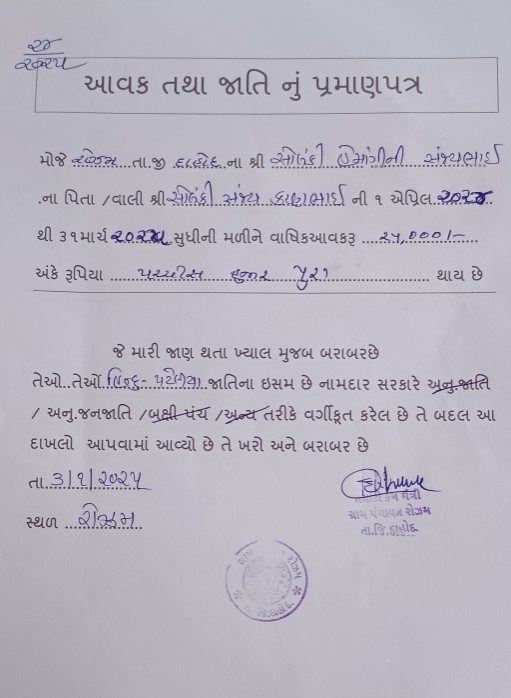 ૨૪
૨૦૨૫
આવક તથા જાતિ નું પ્રમાણપત્ર
મોજે રોઝમ તા.જી દાહોદ ના શ્રી સોલંકી હિમાંગીની સંજયભાઈ
.ના પિતા /વાલી શ્રી સોલંકી સંજય ની ૧ એપ્રિલ ૨૦૨૪
થી ૩૧માર્ચ ૨૦૨૫ સુધીની મળીને વાષિકઆવકરૂ ....૨૫,૦૦૦/-
અંકે રૂપિયા પચ્ચીસ હજાર પુરા થાય છે
જે મારી જાણ થતા ખ્યાલ મુજબ બરાબરછે
તેઓ..તેઓં હિન્દુ-પટેલીયા જાતિના ઇસમ છે નામદાર સરકારે અનુ.જાતિ
/ અનુ.જનજાતિ /બક્ષી પંચ /અન્ય તરીકે વર્ગીકૃત કરેલ છે તે બદલ આ
દાખલો આપવામાં આવ્યો છે તે ખરો અને બરાબર છે
તા.૩/૧/૨૦૨૫
સ્થળ ...રોઝમ
તલાટી કમ મંત્રી
ગ્રામ પંચાયત રોઝમ
તા.જિ.દાહોદ